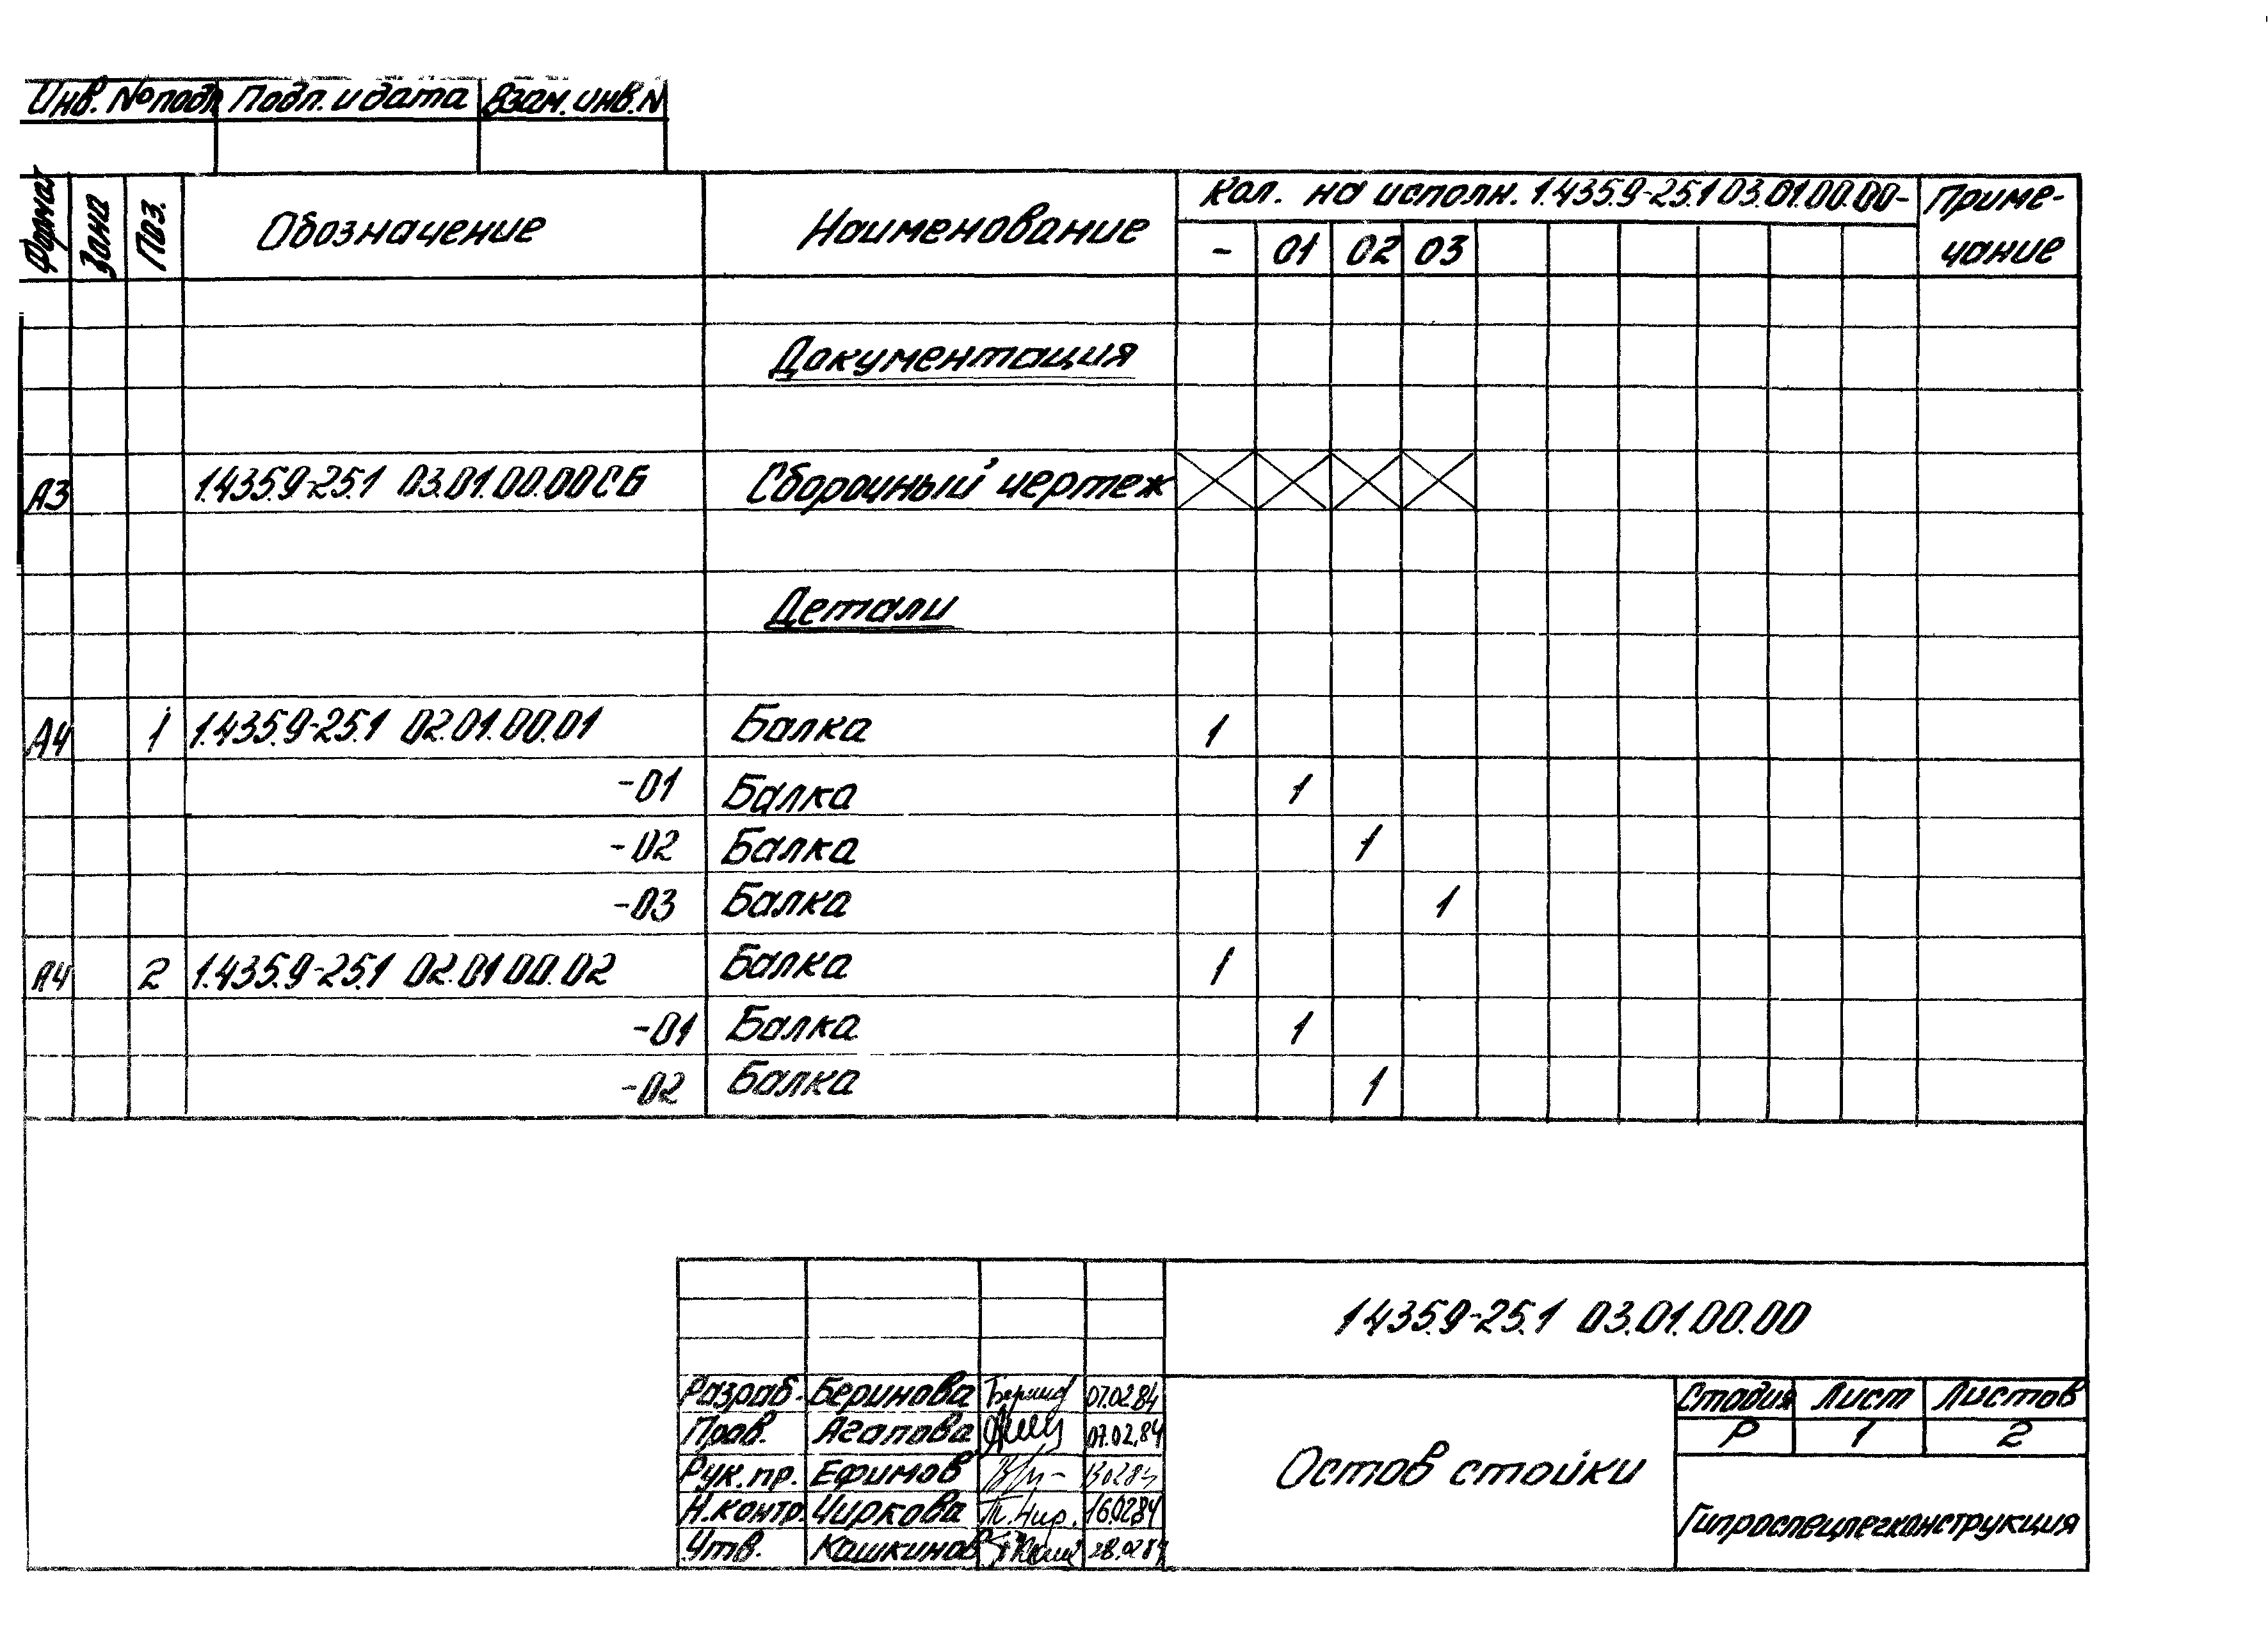 Инв. № подл Подп. и дата Взам. инв. N
Формат Зона Поз. Обозначение Наименование Кол. на исполн. 1.435.9-25.1 03.01.00.00- Приме-
- 01 02 03 чание
Документация
А3 1.435.9-25.1 03.01.00.00СБ Сборочный чертеж
Детали
А4 1 1.435.9-25.1 02.01.00.01 Балка 1
-01 Балка 1
-02 Балка 1
-03 Балка 1
А4 2 1.435.9-25.1 02.01 00.02 Балка 1
-01 Балка 1
-02 Балка 1
1435.9-25.1 03.01.00.00
Разраб. Беринова 07.02.84
Пров. Агапова 07.02.84
Рук. пр. Ефимов
Н.контр. Чиркова 16.02.84
Утв. Кашкинов 28.02.84
Остов стойки
Стадия Лист Листов
Р 1 2
Гипроспецлегконструкция